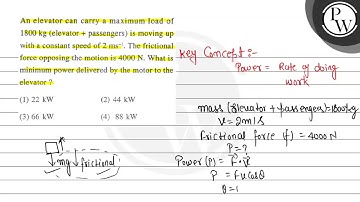 An elevator can carry a maximum load of
1800 kg (elevator + passengers) is moving up
with a constant speed of 2 ms⁻¹. The frictional
force opposing the motion is 4000 N. What is
minimum power delivered by the motor to the
elevator ?
(1) 22 kW (2) 44 kW
(3) 66 kW (4) 88 kW
mg frictional
PW
Key Concept :-
Power = Rate of doing
work
mass (Elevator + Passengers) = 1800 kg
V = 2 m/s
frictional force (f) = 4000 N
P = ?
Power (P) = F⃗ · v⃗
P = Fv cos θ
θ = 1